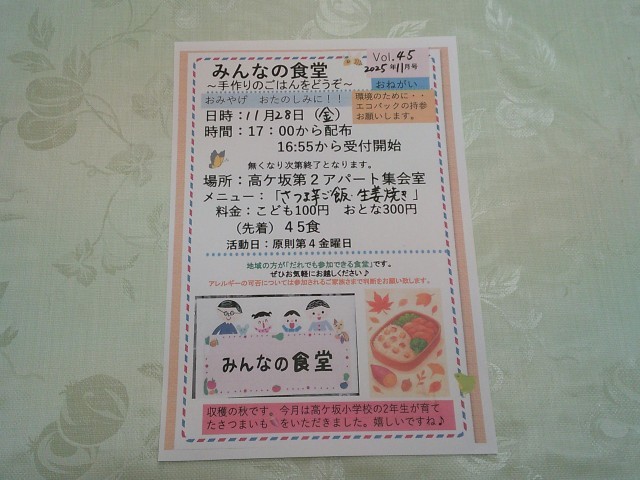 Vol.45
2025年11月号
みんなの食堂
～手作りのごはんをどうぞ～
おねがい
おみやげ おたのしみに！！
環境のために・・
エコバックの持参
お願いします。
日時：11月28日（金）
時間：17：00から配布
16:55から受付開始
無くなり次第終了となります。
場所：高ケ坂第２アパート集会室
メニュー：「さつま芋ご飯・生姜焼き」
料金：こども100円 おとな300円
（先着）４５食
活動日：原則第４金曜日
地域の方が「だれでも参加できる食堂」です。
ぜひお気軽にお越しください♪
アレルギーの可否については参加されるご家族さまで判断をお願い致します。
みんなの食堂
収穫の秋です。今月は高ケ坂小学校の2年生が育て
たさつまいも🍠をいただきました。嬉しいですね♪